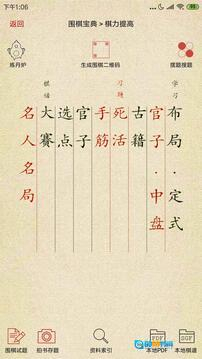 下午1:06
返回
围棋宝典 > 棋力提高
炼丹炉
生成围棋二维码
摆题搜题
学习
习题
棋谱
布局·定式
官子·中盘
古籍
死活
手筋
官子
选点
大赛
名人名局
PDF
围棋试题
拍书存题
资料索引
本地PDF
本地棋谱